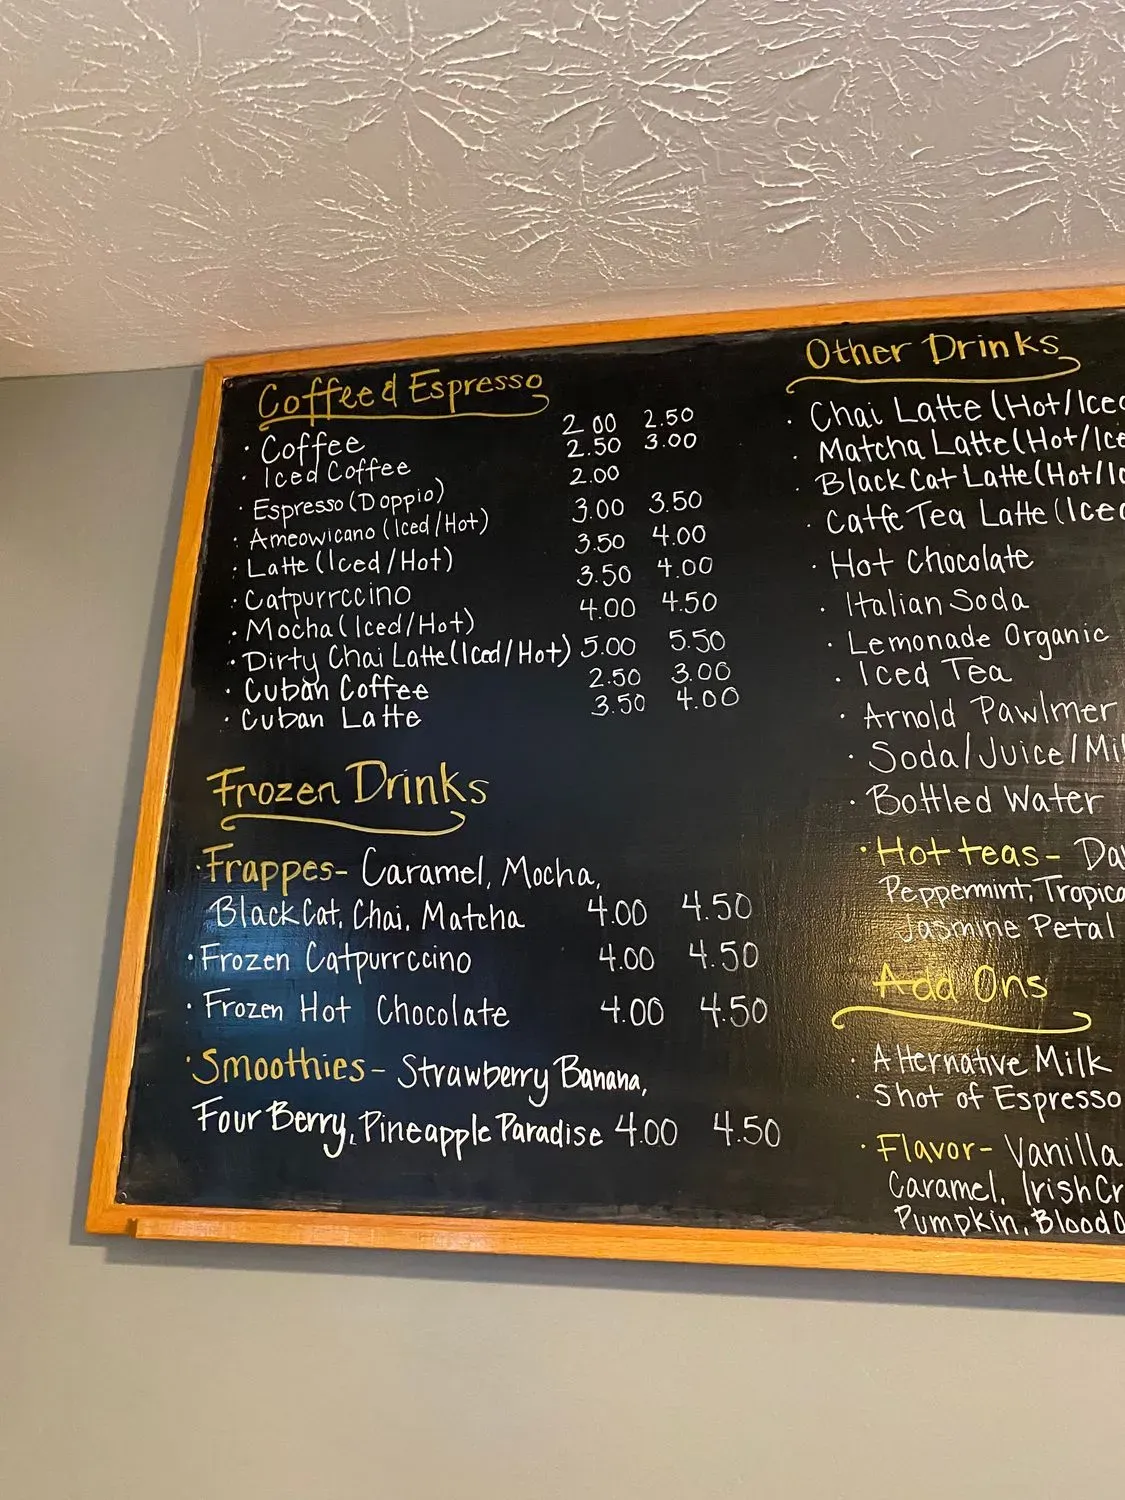 Coffee & Espresso
· Coffee 2.00 2.50
· Iced Coffee 2.50 3.00
· Espresso (Doppio) 2.00
· Ameowicano (Iced/Hot) 3.00 3.50
· Latte (Iced/Hot) 3.50 4.00
· Catpurrccino 3.50 4.00
· Mocha (Iced/Hot) 4.00 4.50
· Dirty Chai Latte (Iced/Hot) 5.00 5.50
· Cuban Coffee 2.50 3.00
· Cuban Latte 3.50 4.00
Frozen Drinks
· Frappes- Caramel, Mocha,
Black Cat, Chai, Matcha 4.00 4.50
· Frozen Catpurrccino 4.00 4.50
· Frozen Hot Chocolate 4.00 4.50
· Smoothies- Strawberry Banana,
Four Berry, Pineapple Paradise 4.00 4.50
Other Drinks
· Chai Latte (Hot/Iced
· Matcha Latte (Hot/Ice
· Black Cat Latte (Hot/Ic
· Catfe Tea Latte (Iced
· Hot Chocolate
· Italian Soda
· Lemonade Organic
· Iced Tea
· Arnold Pawlmer
· Soda/Juice/Mil
· Bottled Water
· Hot teas- Da
Peppermint, Tropica
Jasmine Petal
Add Ons
· Alternative Milk
· Shot of Espresso
· Flavor- Vanilla
Caramel, Irish Cr
Pumpkin, Blood O